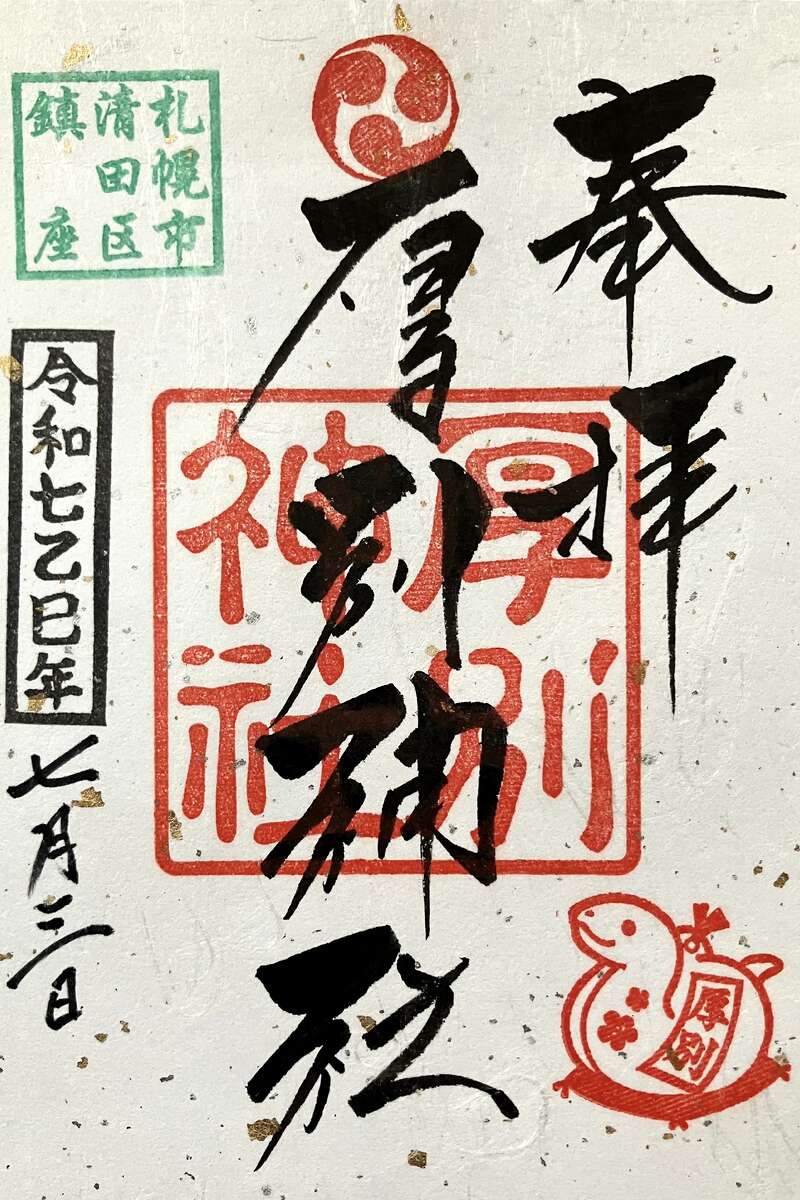 奉拝
厚別神社
厚別
神社
厚別
札幌市
清田区
鎮座
令和七乙巳年
七月三日